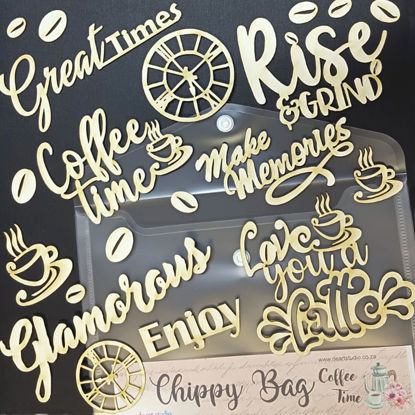 Great Times
Rise
& GRIND
Coffee
time
Make
Memories
Love
you a
Latte
Glamorous
Enjoy
www.deartstudio.co.za
Chippy Bag
Coffee
Time